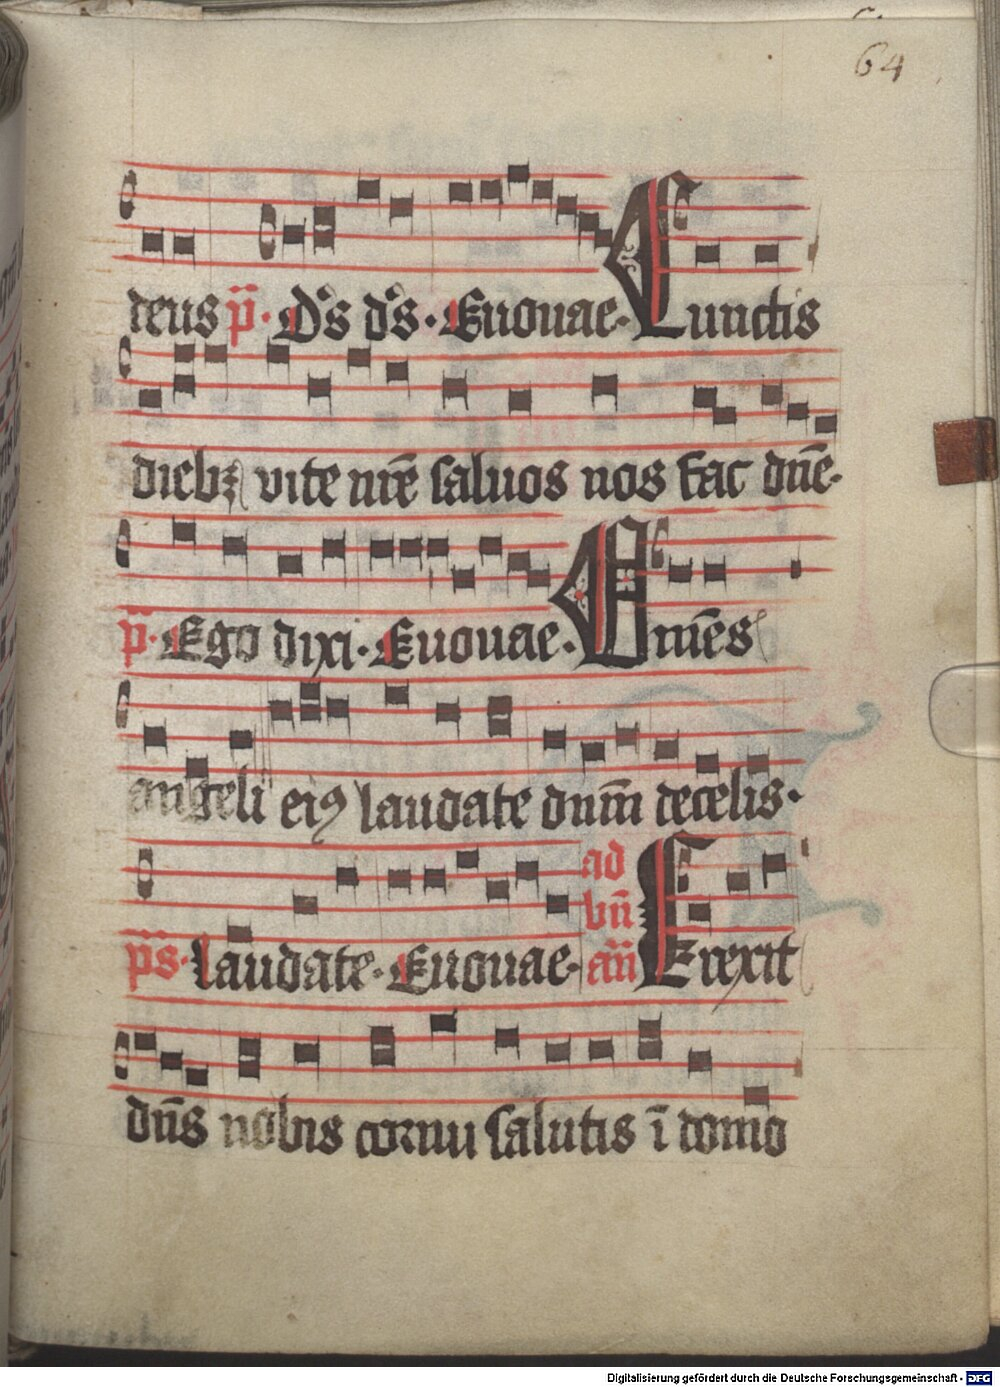 64
deus p̄. Ds ds. Euouae. Cunctis
diebꝫ vite nr̄e saluos nos fac dn̄e.
p̄. Ego dixi. Euouae. Omēs
angeli eiꝰ laudate dnm̄ de celis.
p̄s. laudate. Euouae. ad bn̄ an̄ Erexit
dn̄s nobis cornu salutis ī domo
Digitalisierung gefördert durch die Deutsche Forschungsgemeinschaft - DFG